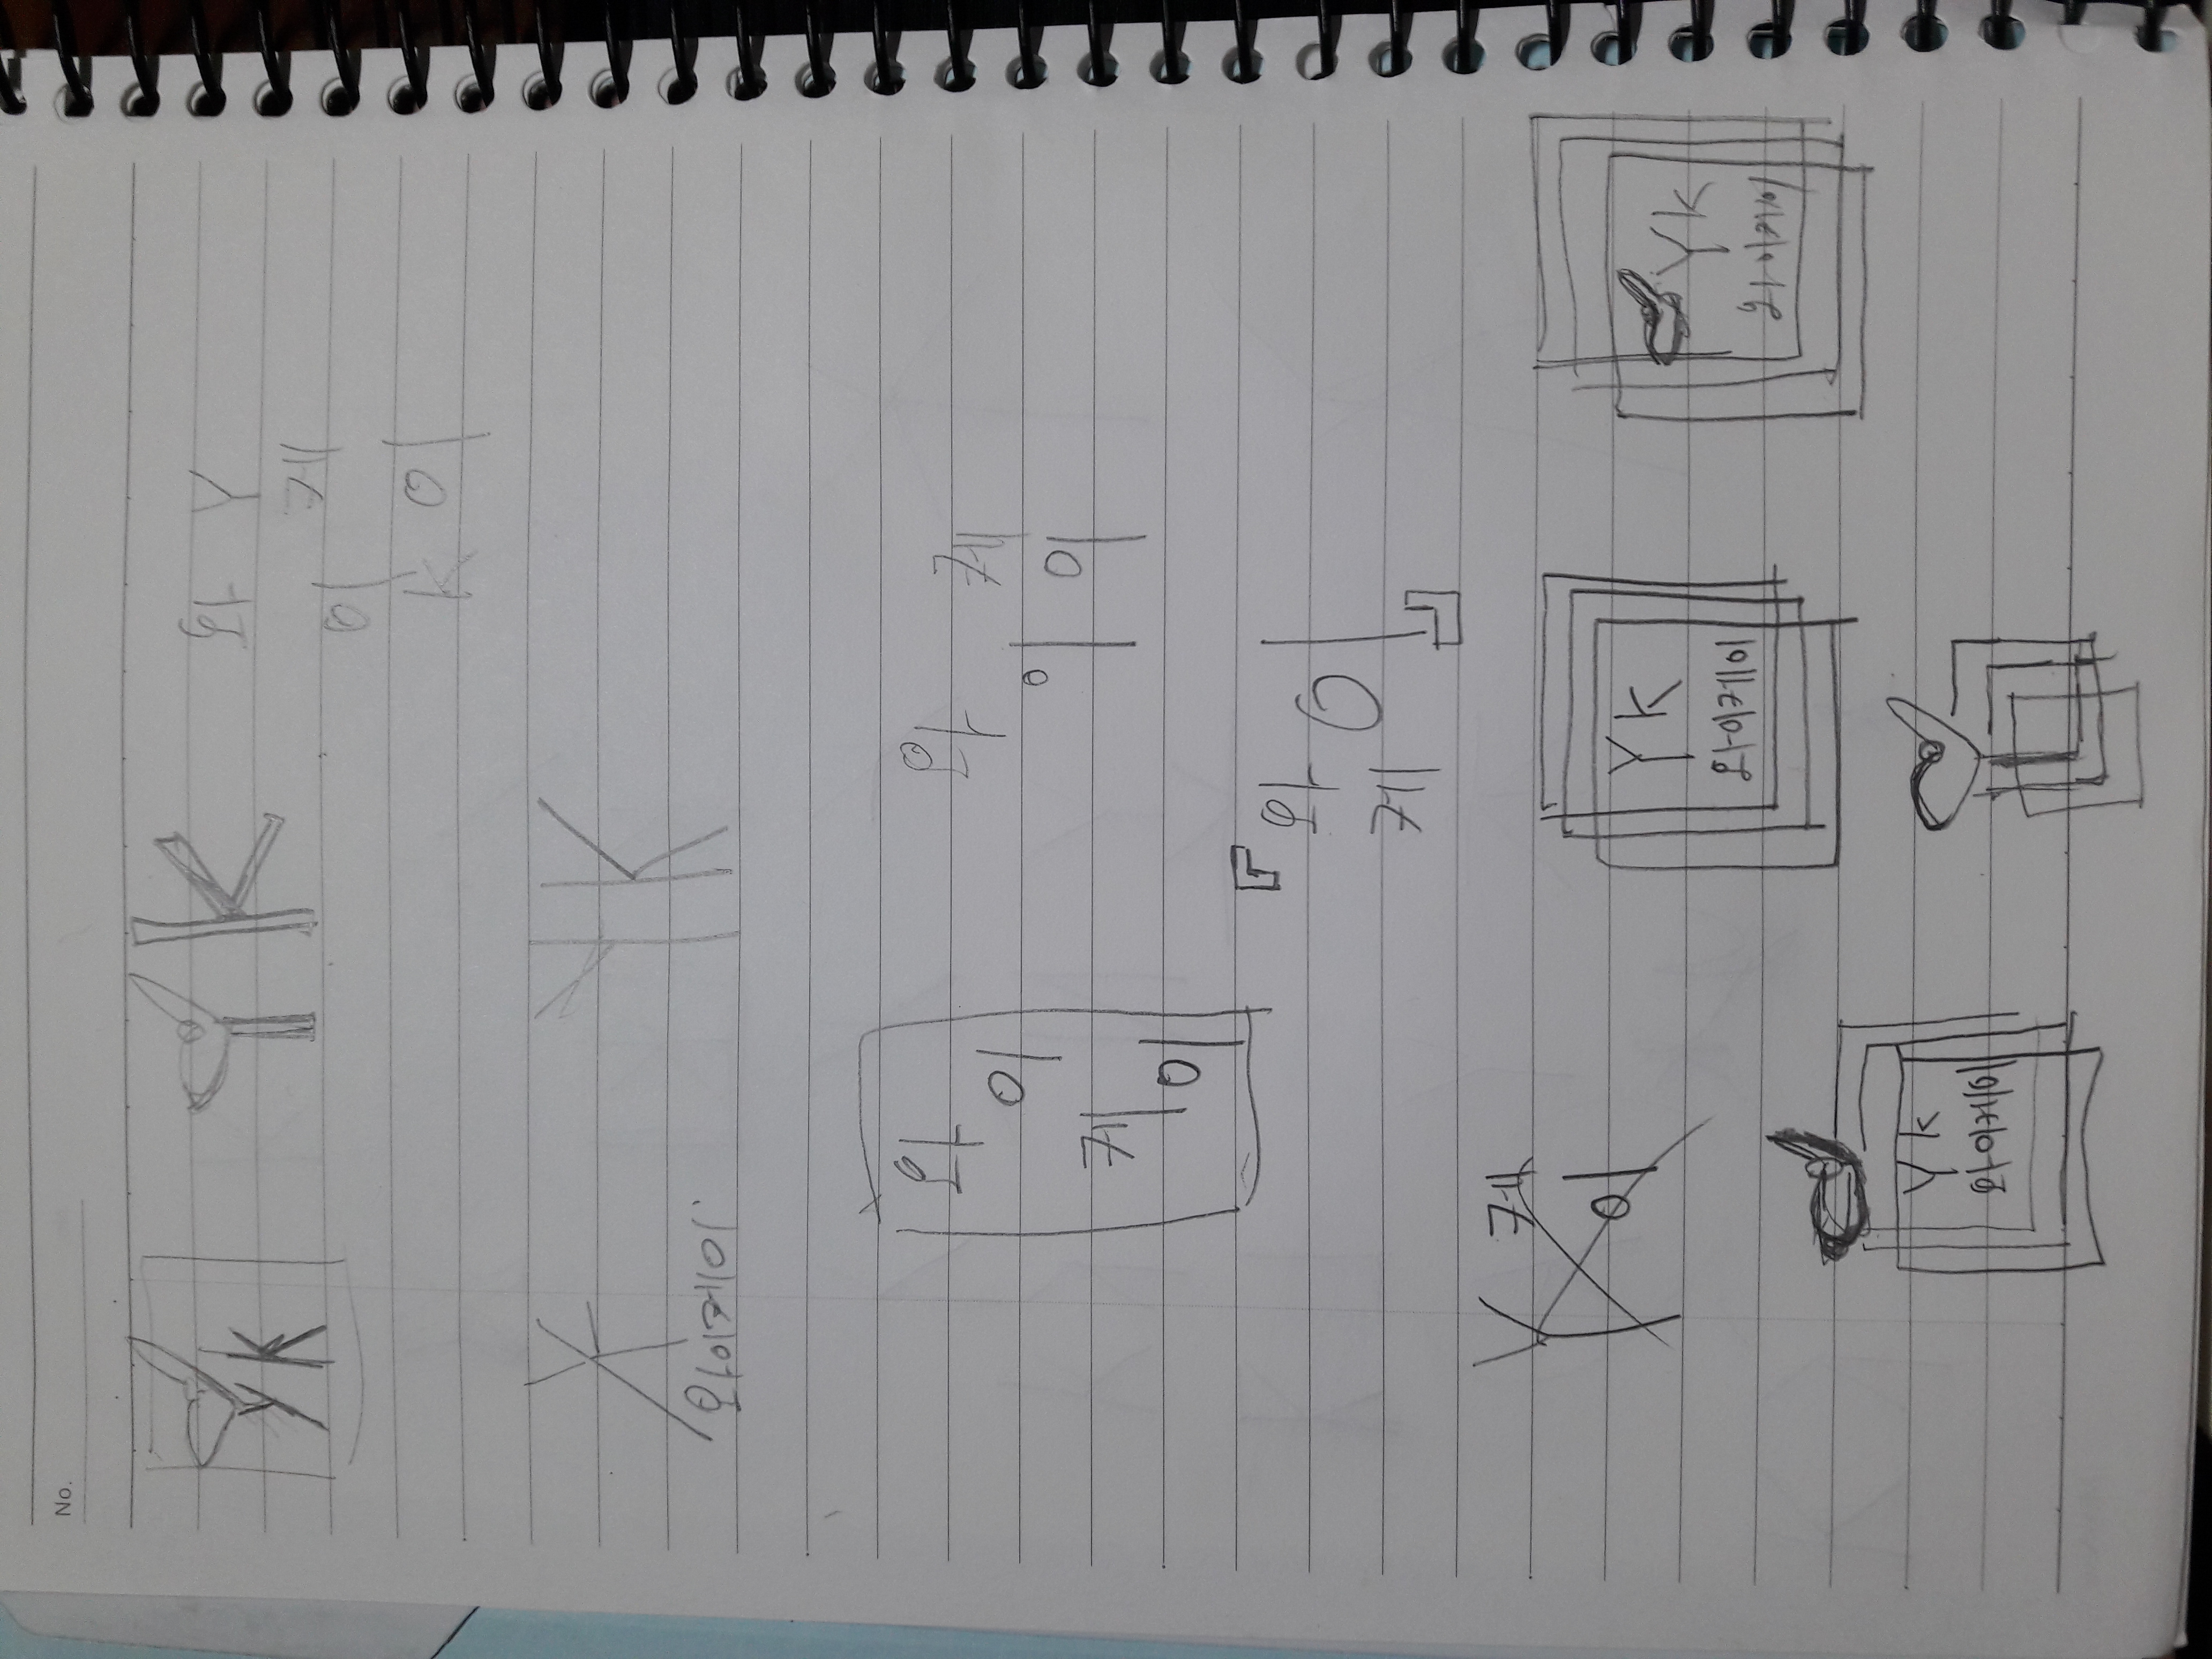 No.
YK
YK
와 Y
케
이
K 이
Y K
와이케이.
와
이
케
이
와 케
이 이
와 이
케
Y 케
이
YK
와이케이
YK
와이케이
YK
와이케이